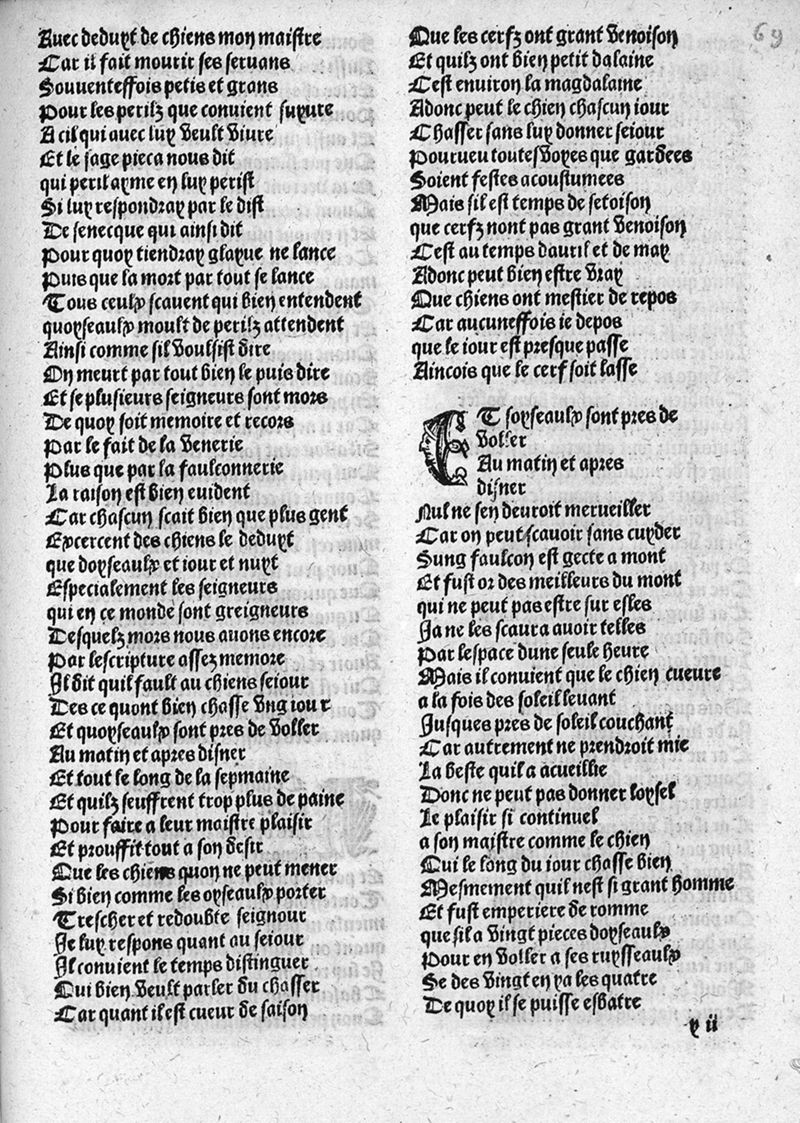 Auec deduyt de chiens mon maistre
Car il fait mourir ses seruans
Souuenteffois petis et grans
Pour les perilz que conuient suyure
A cil qui auec luy veult viure
Et le sage pieca nous dit
qui peril ayme en luy perist
Si luy respondray par le dist
De senecque qui ainsi dit
Pour quoy tiendray glayue ne lance
Puis que la mort par tout se lance
Tous ceulx scauent qui bien entendent
quoyseaulx moult de perilz attendent
Ainsi comme sil voulsist dire
On meurt par tout bien le puis dire
Et se plusieurs seigneurs sont mors
De quoy soit memoire et recors
Par le fait de la venerie
Plus que par la faulconnerie
La raison est bien euident
Car chascun scait bien que plus gent
Excercent des chiens le deduyt
que doyseaulx et iour et nuyt
Especialement les seigneurs
qui en ce monde sont greigneurs
Desquelz mors nous auons encore
Par lescripture assez memore
Il dit quil fault au chiens seiour
Des ce quont bien chasse vng iour
Et quoyseaulx sont pres de voller
Au matin et apres disner
Et tout le long de la sepmaine
Et quilz seuffrent trop plus de paine
Pour faire a leur maistre plaisir
Et prouffit tout a son desir
Que les chiens quon ne peut mener
Si bien comme les oyseaulx porter
Trescher et redoubte seignour
Je luy respons quant au seiour
Il conuient le temps distinguer
Qui bien veult parler du chasser
Car quant il est cueur de saison
69
Que les cerfz ont grant venoison
Et quilz ont bien petit dalaine
Cest enuiron la magdalaine
Adonc peut le chien chascun iour
Chasser sans luy donner seiour
Pourueu toutesvoyes que gardees
Soient festes acoustumees
Mais sil est temps de setoison
que cerfz nont pas grant venoison
Cest au temps dauril et de may
Adonc peut bien estre vray
Que chiens ont mestier de repos
Car aucuneffois ie depos
que le iour est presque passe
Aincois que le cerf soit lasse
ET soyseaulx sont pres de
voller
Au matin et apres
disner
Nul ne sen deuroit merueiller
Car on peut scauoir sans cuyder
Sung faulcon est gecte a mont
Et fust or des meilleurs du mont
qui ne peut pas estre sur esles
Ja ne les scaura auoir telles
Par lespace dune seule heure
Mais il conuient que le chien cueure
a la fois des soleil leuant
Jusques pres de soleil couchant
Car autrement ne prendroit mie
La beste quil a acueillie
Donc ne peut pas donner loysel
Le plaisir si continuel
a son maistre comme le chien
Qui le long du iour chasse bien
Mesmement quil nest si grant homme
Et fust emperiere de romme
que sil a vingt pieces doyseaulx
Pour en voller a ses ruysseaulx
Se des vingt en ya les quatre
De quoy il se puisse esbatre
y ii